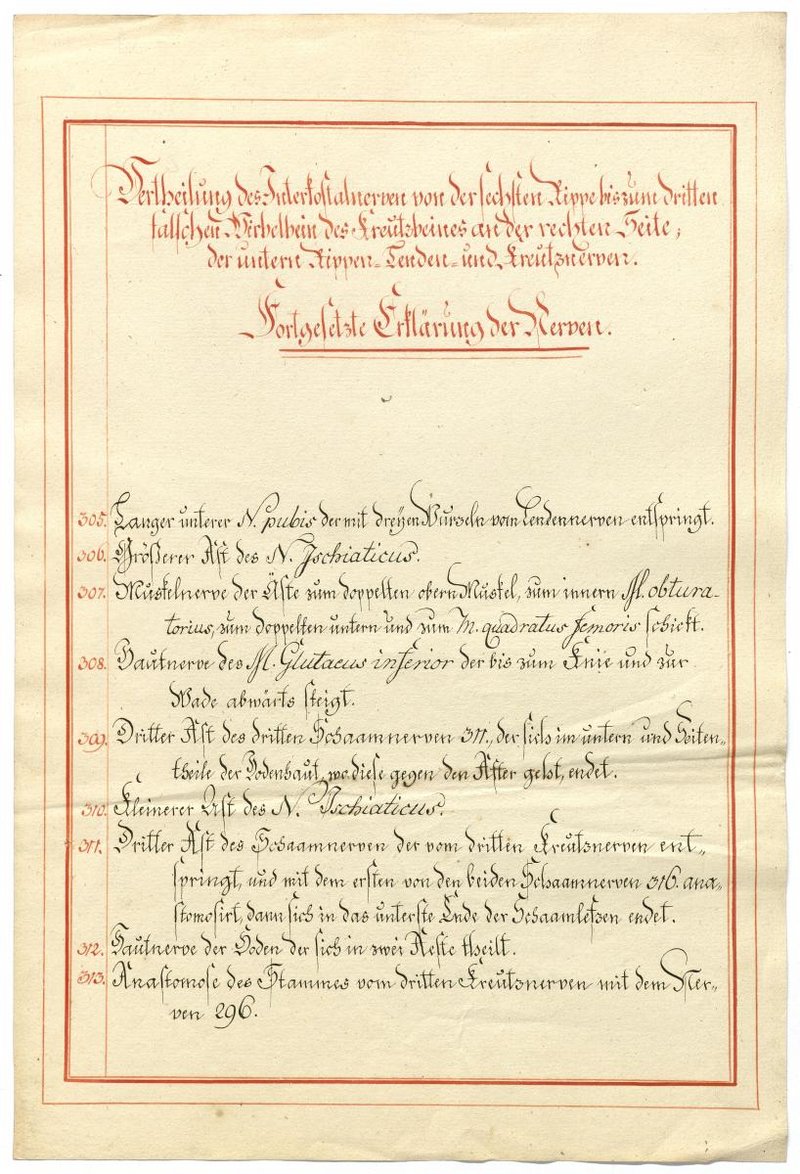 Vertheilung des Interkostalnerven von der sechsten Rippe bis zum dritten
falschen Wirbelbein des Kreutzbeines an der rechten Seite;
der untern Rippen- Lenden- und Kreutznerven.
Fortgesetzte Erklärung der Nerven.
305. Langer unterer N. pubis der mit dreÿen Wurzeln vom Lendennerven entspringt.
306. Größerer Ast des N. Ischiaticus.
307. Muskelnerve der Äste zum doppelten obern Muskel, zum innern M. obtura-
torius, zum doppelten untern und zum M. quadratus femoris schickt.
308. Hautnerve des M. Glutaeus inferior der bis zum Knie und zur
Wade abwärts steigt.
309. Dritter Ast des dritten Schaamnerven 311., der sich im untern und Seiten-
theile der Hodenhaut, wo diese gegen den After geht, endet.
310. Kleinerer Ast des N. Ischiaticus.
311. Dritter Ast des Schaamnerven der vom dritten Kreutznerven ent-
springt, und mit dem ersten von den beiden Schaamnerven 316. ana-
stomosirt, dann sich in das unterste Ende der Schaamlefzen endet.
312. Hautnerve der Hoden der sich in zwei Aeste theilt.
313. Anastomose des Stammes vom dritten Kreutznerven mit dem Ner-
ven 296.